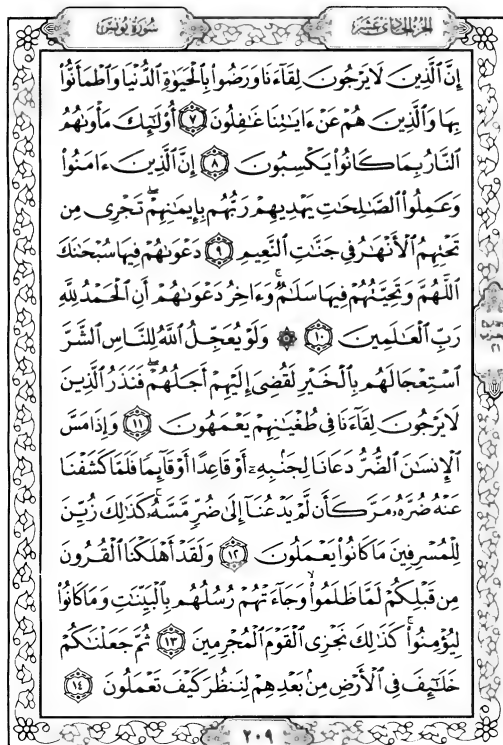 سُورَةُ يُونُس الجُزءُ الحَادِي عَشَر
إِنَّ ٱلَّذِينَ لَا يَرۡجُونَ لِقَآءَنَا وَرَضُواْ بِٱلۡحَيَوٰةِ ٱلدُّنۡيَا وَٱطۡمَأَنُّواْ
بِهَا وَٱلَّذِينَ هُمۡ عَنۡ ءَايَٰتِنَا غَٰفِلُونَ ٧ أُوْلَٰٓئِكَ مَأۡوَىٰهُمُ
ٱلنَّارُ بِمَا كَانُواْ يَكۡسِبُونَ ٨ إِنَّ ٱلَّذِينَ ءَامَنُواْ
وَعَمِلُواْ ٱلصَّٰلِحَٰتِ يَهۡدِيهِمۡ رَبُّهُم بِإِيمَٰنِهِمۡۖ تَجۡرِي مِن
تَحۡتِهِمُ ٱلۡأَنۡهَٰرُ فِي جَنَّٰتِ ٱلنَّعِيمِ ٩ دَعۡوَىٰهُمۡ فِيهَا سُبۡحَٰنَكَ
ٱللَّهُمَّ وَتَحِيَّتُهُمۡ فِيهَا سَلَٰمٞۚ وَءَاخِرُ دَعۡوَىٰهُمۡ أَنِ ٱلۡحَمۡدُ لِلَّهِ
رَبِّ ٱلۡعَٰلَمِينَ ١٠ ۞ وَلَوۡ يُعَجِّلُ ٱللَّهُ لِلنَّاسِ ٱلشَّرَّ
ٱسۡتِعۡجَالَهُم بِٱلۡخَيۡرِ لَقُضِيَ إِلَيۡهِمۡ أَجَلُهُمۡۖ فَنَذَرُ ٱلَّذِينَ
لَا يَرۡجُونَ لِقَآءَنَا فِي طُغۡيَٰنِهِمۡ يَعۡمَهُونَ ١١ وَإِذَا مَسَّ
ٱلۡإِنسَٰنَ ٱلضُّرُّ دَعَانَا لِجَنۢبِهِۦٓ أَوۡ قَاعِدًا أَوۡ قَآئِمٗا فَلَمَّا كَشَفۡنَا
عَنۡهُ ضُرَّهُۥ مَرَّ كَأَن لَّمۡ يَدۡعُنَآ إِلَىٰ ضُرّٖ مَّسَّهُۥۚ كَذَٰلِكَ زُيِّنَ
لِلۡمُسۡرِفِينَ مَا كَانُواْ يَعۡمَلُونَ ١٢ وَلَقَدۡ أَهۡلَكۡنَا ٱلۡقُرُونَ
مِن قَبۡلِكُمۡ لَمَّا ظَلَمُواْ وَجَآءَتۡهُمۡ رُسُلُهُم بِٱلۡبَيِّنَٰتِ وَمَا كَانُواْ
لِيُؤۡمِنُواْۚ كَذَٰلِكَ نَجۡزِي ٱلۡقَوۡمَ ٱلۡمُجۡرِمِينَ ١٣ ثُمَّ جَعَلۡنَٰكُمۡ
خَلَٰٓئِفَ فِي ٱلۡأَرۡضِ مِنۢ بَعۡدِهِمۡ لِنَنظُرَ كَيۡفَ تَعۡمَلُونَ ١٤
٢٠٩